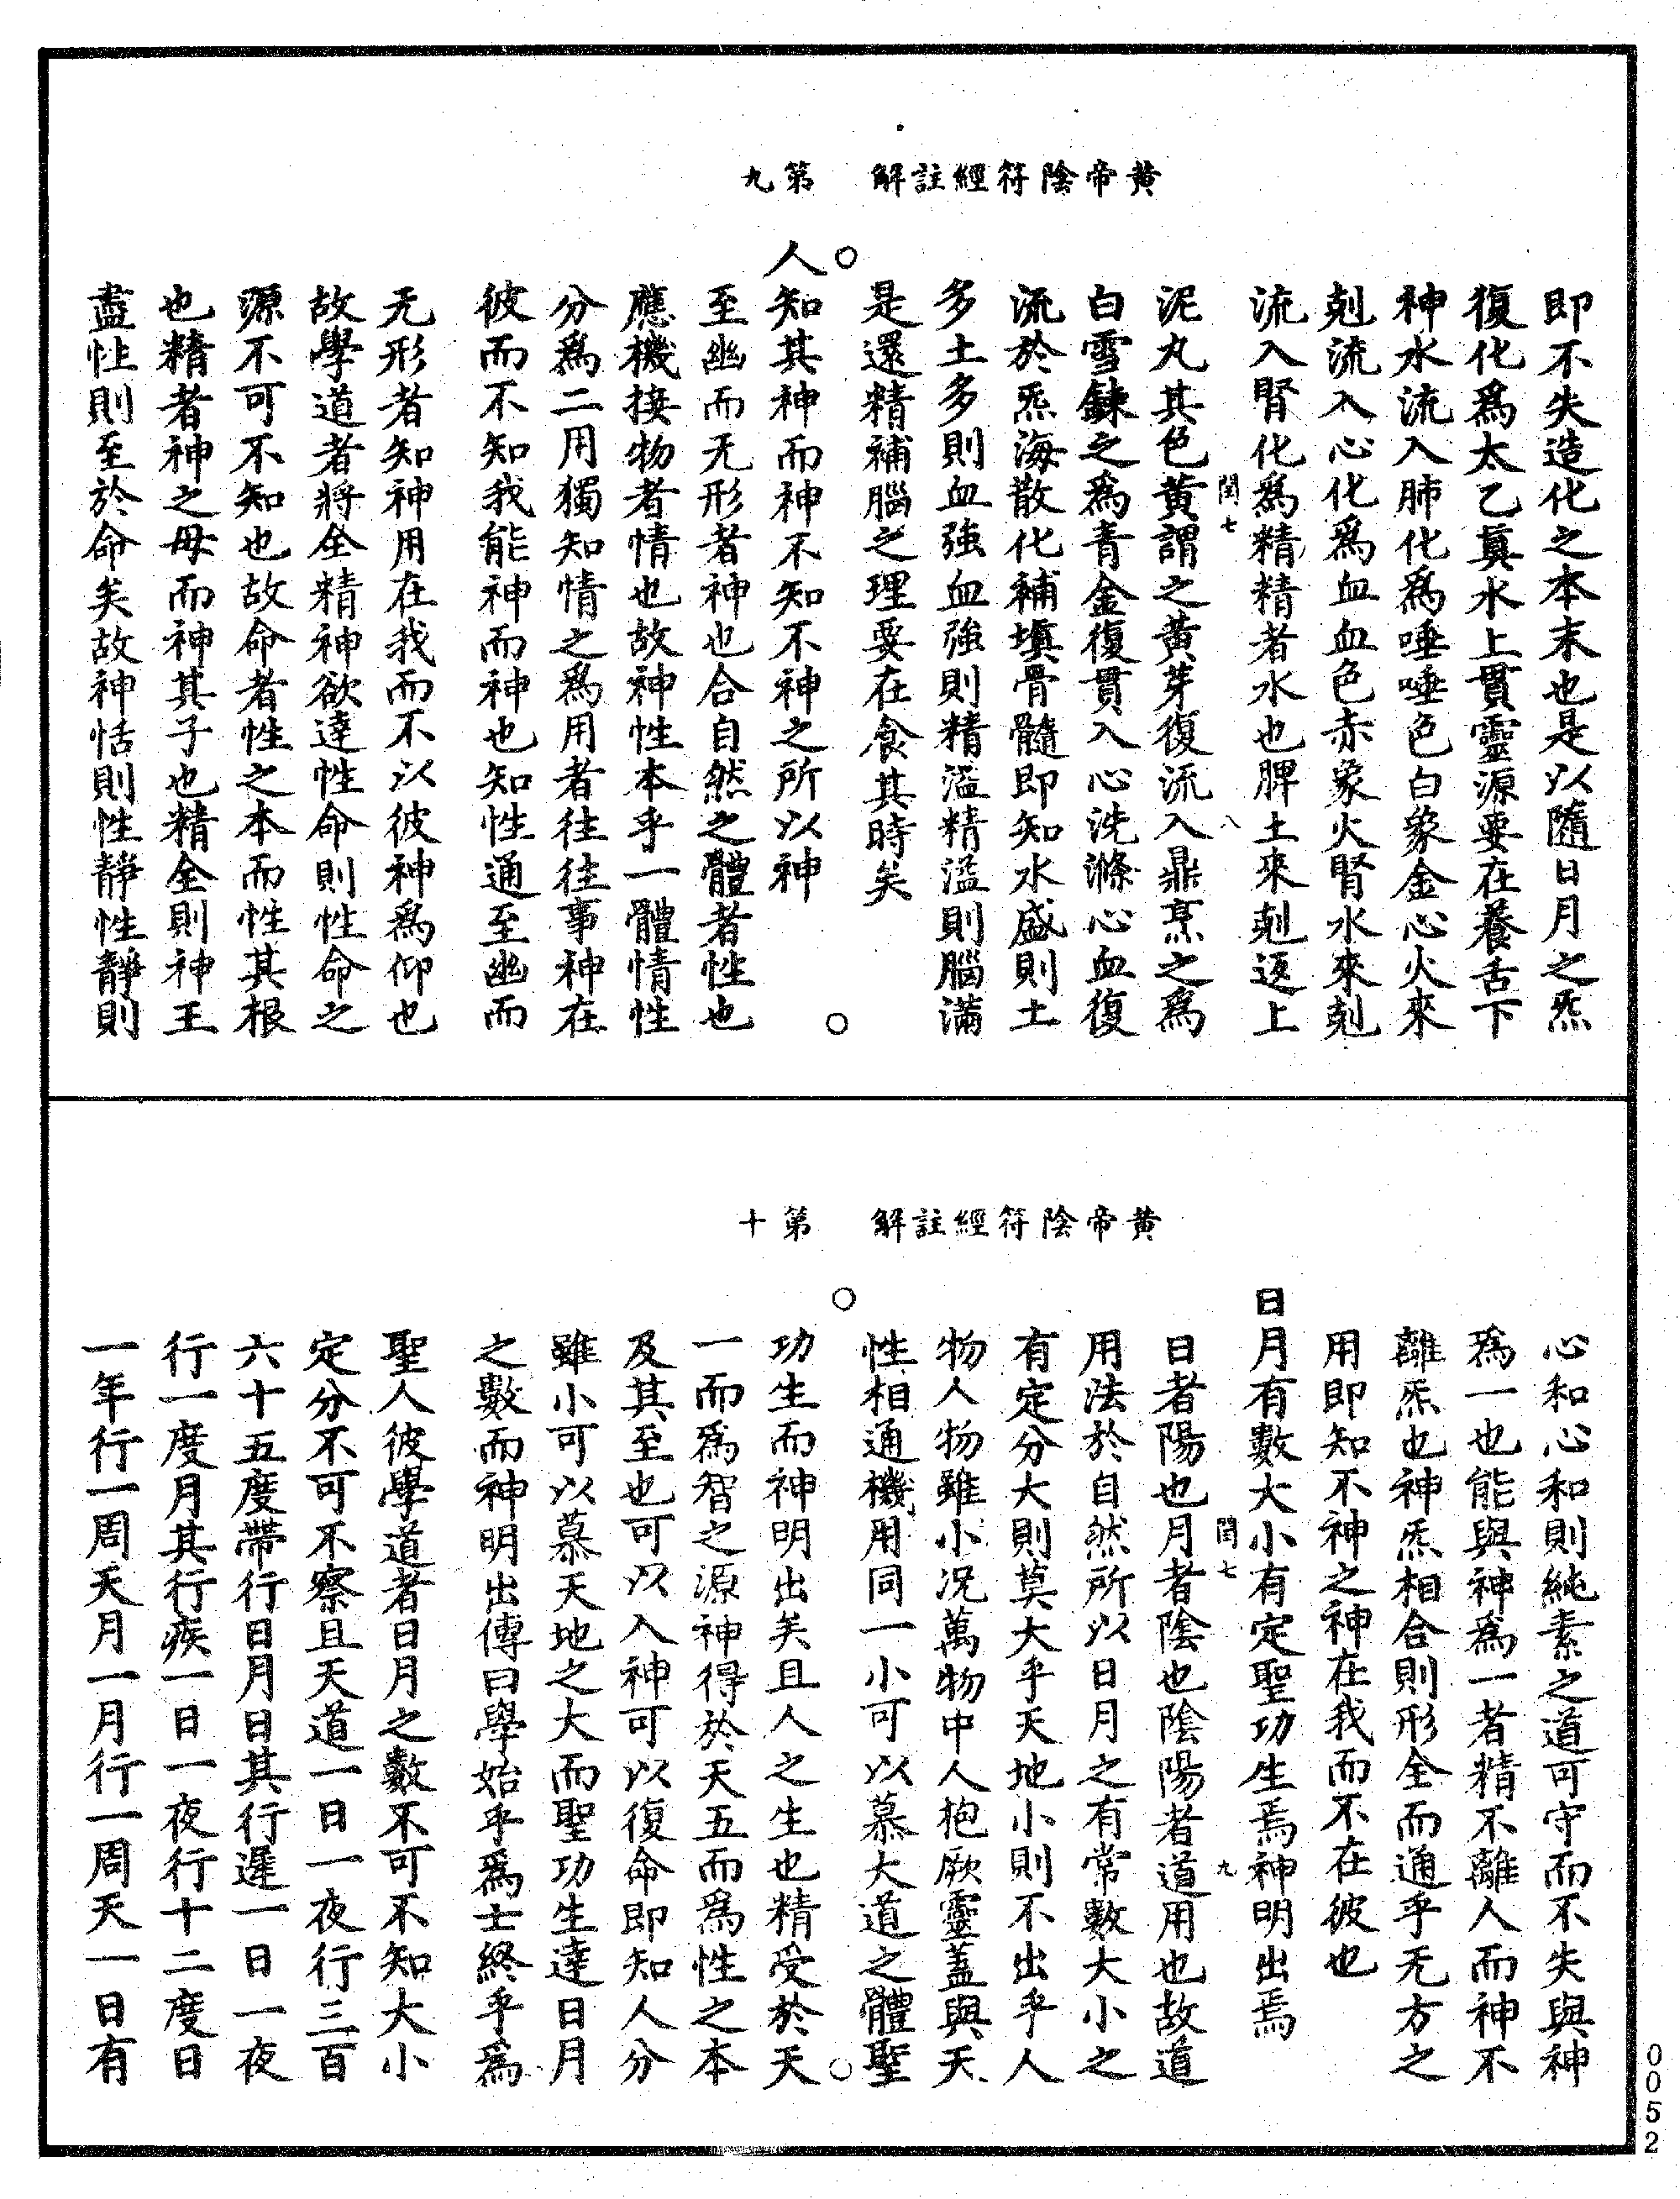 黃帝陰符經註解　第九
即不失造化之本末也是以隨日月之炁
復化爲太乙眞水上貫靈源要在養舌下
神水流入肺化爲唾唾色白象金心火來
剋流入心化爲血血色赤象火腎水來剋
流入腎化爲精精者水也脾土來剋逆上
閏七　八
泥丸其色黃謂之黃芽復流入鼎烹之爲
白雪鍊之爲青金復貫入心洗滌心血復
流於炁海散化補塡骨髓即知水盛則土
多土多則血強血強則精溢精溢則腦滿
是還精補腦之理要在食其時矣
○　○
人知其神而神不知不神之所以神
至幽而无形者神也合自然之體者性也
應機接物者情也故神性本乎一體情性
分爲二用獨知情之爲用者往往事神在
彼而不知我能神而神也知性通至幽而
无形者知神用在我而不以彼神爲仰也
故學道者將全精神欲達性命則性命之
源不可不知也故命者性之本而性其根
也精者神之母而神其子也精全則神王
盡性則至於命矣故神恬則性靜性靜則
黃帝陰符經註解　第十
心和心和則純素之道可守而不失與神
爲一也能與神爲一者精不離人而神不
離炁也神炁相合則形全而通乎无方之
用即知不神之神在我而不在彼也
日月有數大小有定聖功生焉神明出焉
閏七　九
日者陽也月者陰也陰陽者道用也故道
用法於自然所以日月之有常數大小之
有定分大則莫大乎天地小則不出乎人
物人物雖小況萬物中人抱厥靈蓋與天
性相通機用同一小可以慕大道之體聖
○　○
功生而神明出矣且人之生也精受於天
一而爲智之源神得於天五而爲性之本
及其至也可以入神可以復命即知人分
雖小可以慕天地之大而聖功生達日月
之數而神明出傳曰學始乎爲士終乎爲
聖人彼學道者日月之數不可不知大小
定分不可不察且天道一日一夜行三百
六十五度帶行日月日其行遲一日一夜
行一度月其行疾一日一夜行十二度日
一年行一周天月一月行一周天一日有
0052